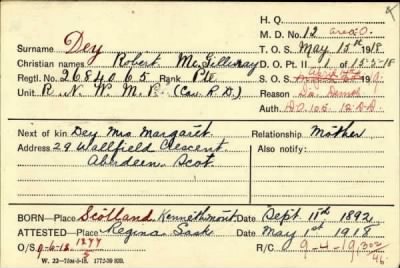 H. Q.
M. D. No. 12 area O.
Surname Dey
T. O. S. May 15th 1918
Christian names Robert McGillivray
D. O. Pt. II 1 of 15-5-18
Regtl. No. 2684065 Rank Pte
S. O. S. 19
Unit R. N. W. M. P. (Cav. R. D.)
Reason On Demob
Auth. D.O. 105 12 D.D.
Next of kin Dey Mrs Margaret
Relationship Mother
Address 29 Wallfield Crescent
Also notify:
Aberdeen Scot.
BORN—Place Scotland Kennethmont Date Sept. 11th 1892
ATTESTED—Place Regina Sask Date May 1st 1918
O/S 9-6-18 1277/5 R/C 9-4-19 302/46